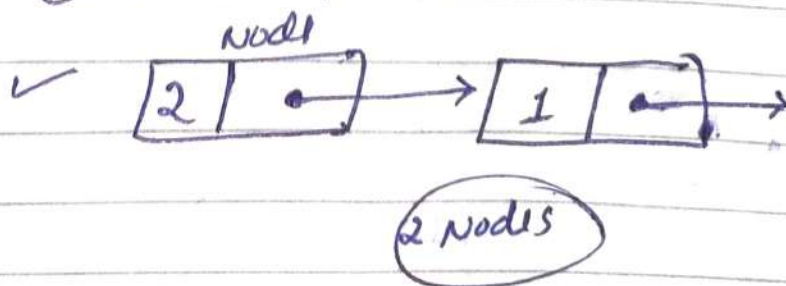 Node
2 1
2 Nodes